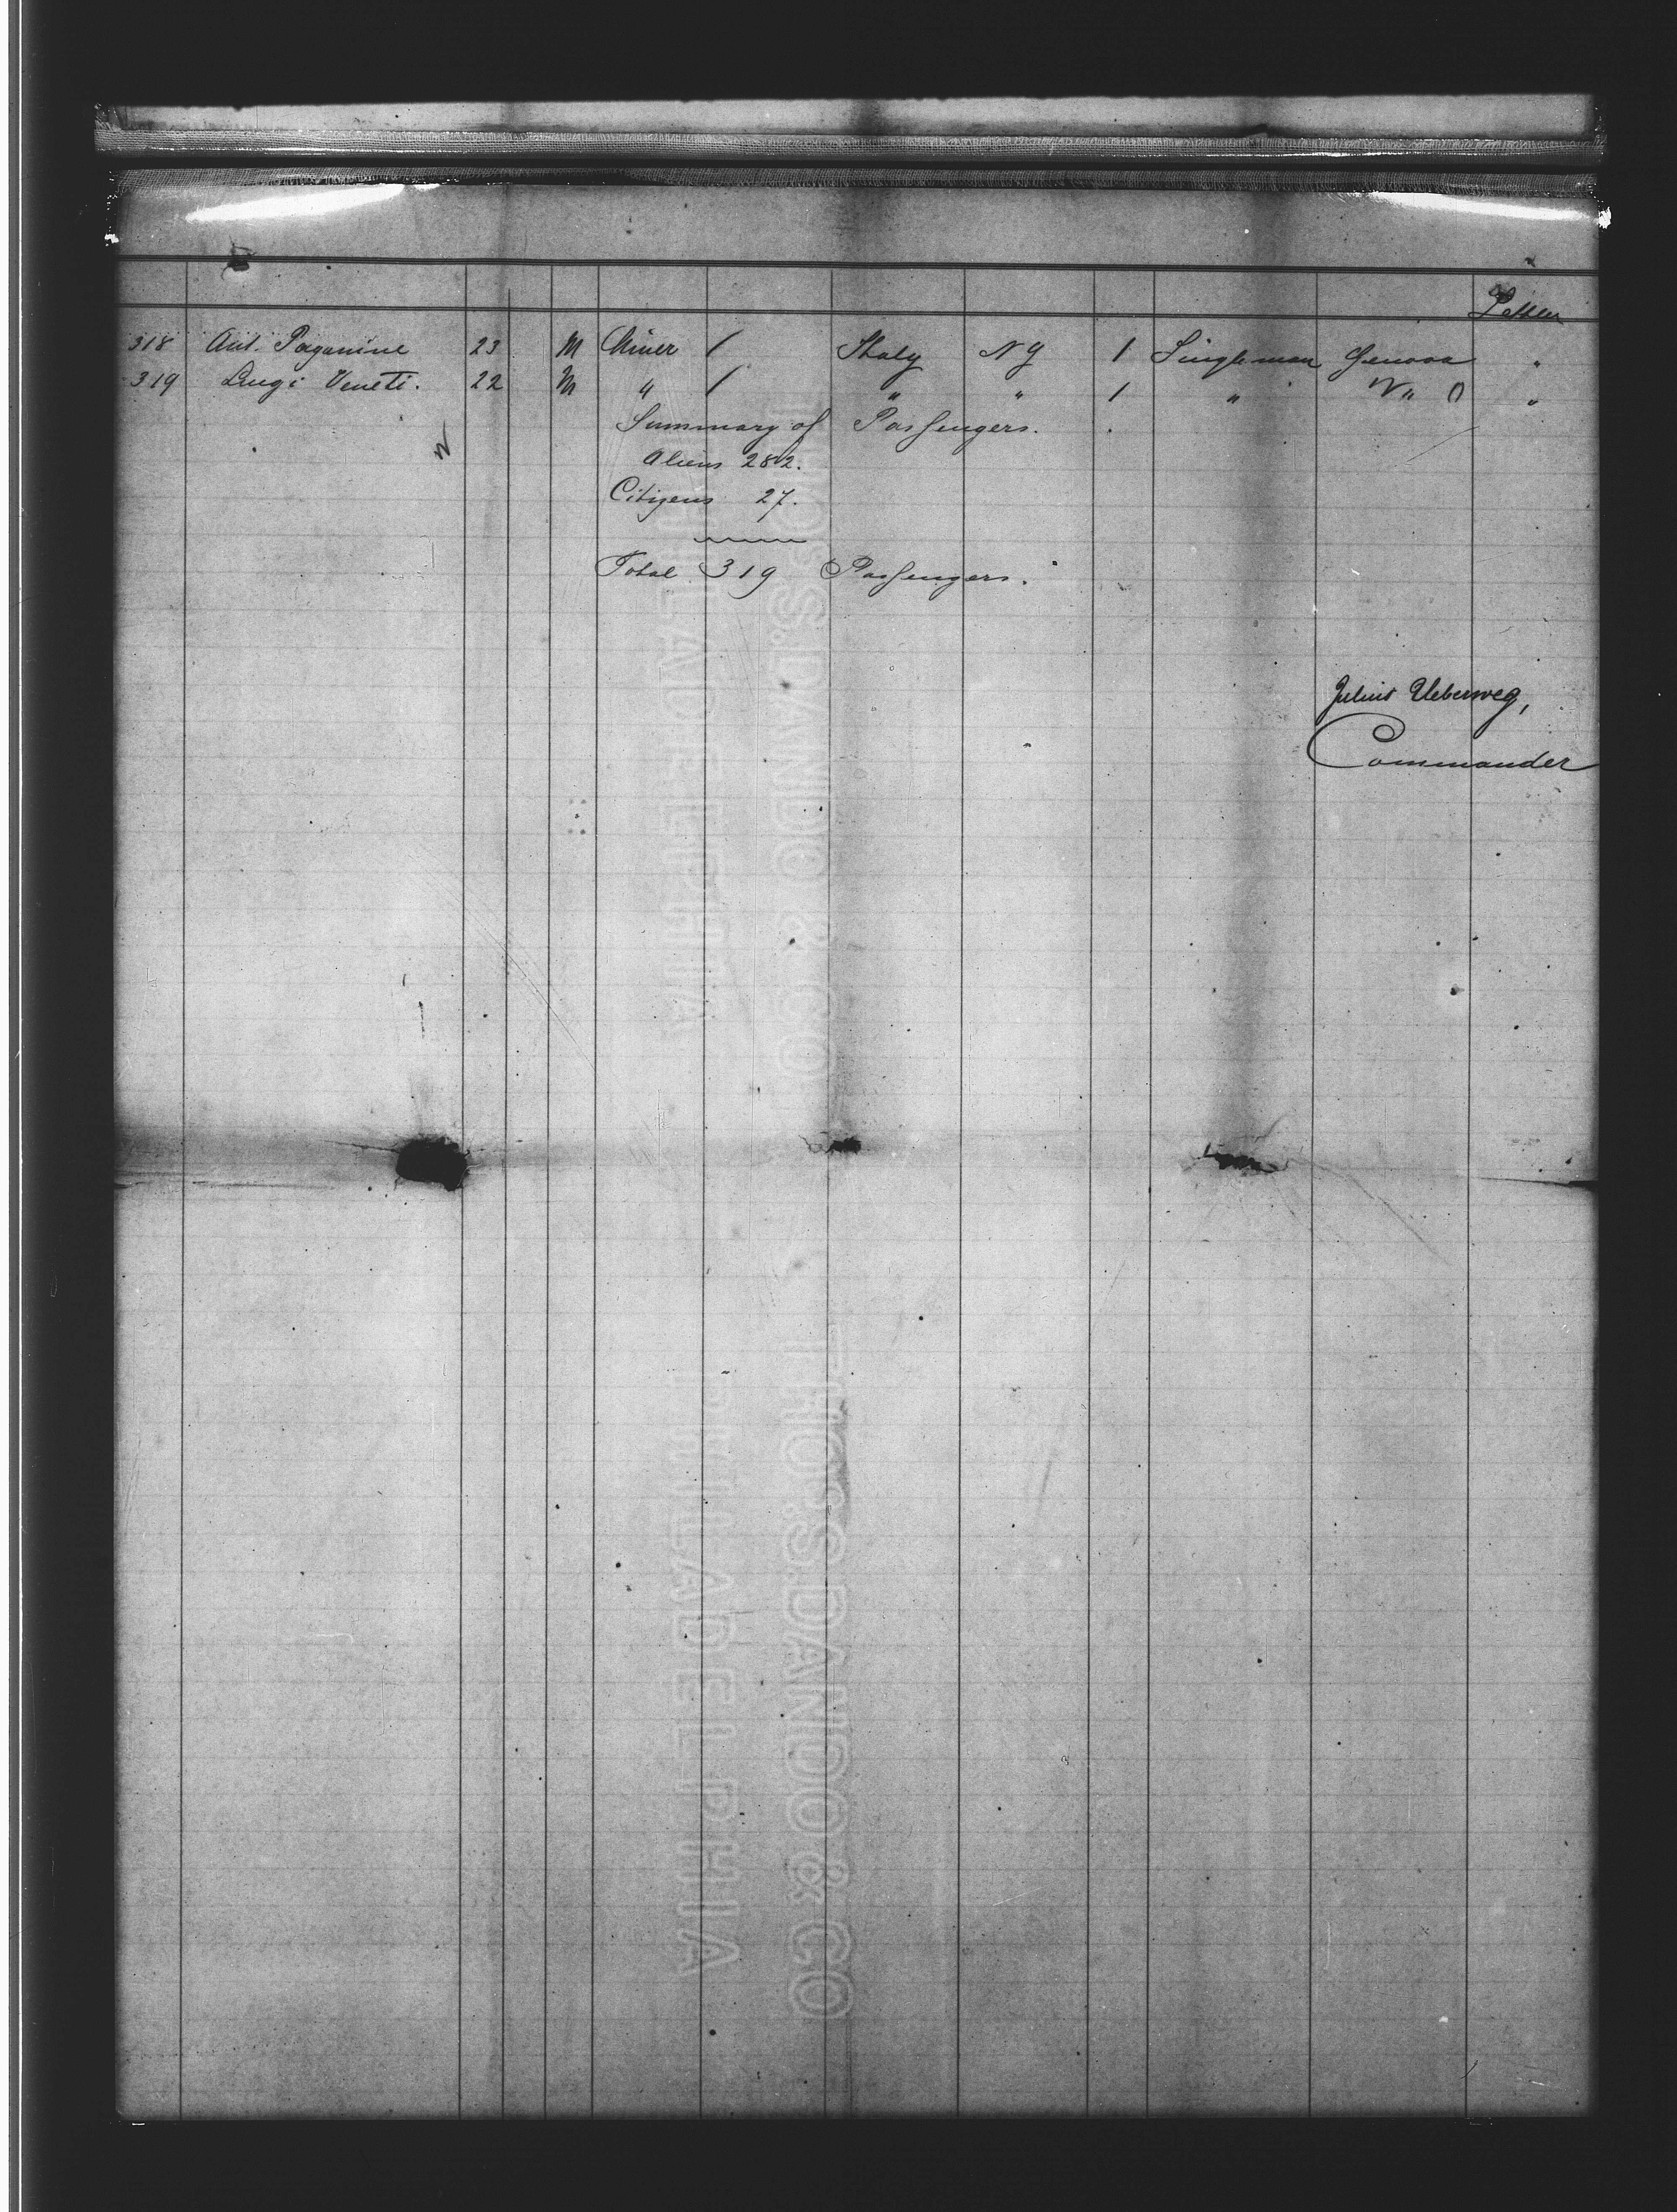 Settler
318 Ant. Paganine 23 M Miner / Italy N Y 1 Singleman Genova "
319 Luigi Veneti. 22 M " / " " 1 " " "
Summary of Passengers.
Aliens 282.
Citizens 27.
Total 319 Passengers.
Julius Ueberweg,
Commander
THOS. S. DANDO & CO
PHILADELPHIA
THOS. S. DANDO & CO
PHILADELPHIA